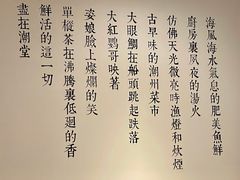 海風海水氣息的肥美魚鮮
廚房裏夙夜的湯火
仿佛天光微亮時漁燈和炊煙
古早味的潮州菜市
大眼鯛在船頭跳起跌落
大紅鸚哥映著
姿娘臉上燦爛的笑
單樅茶在沸騰裏低迴的香
鮮活的這一切
盡在潮堂